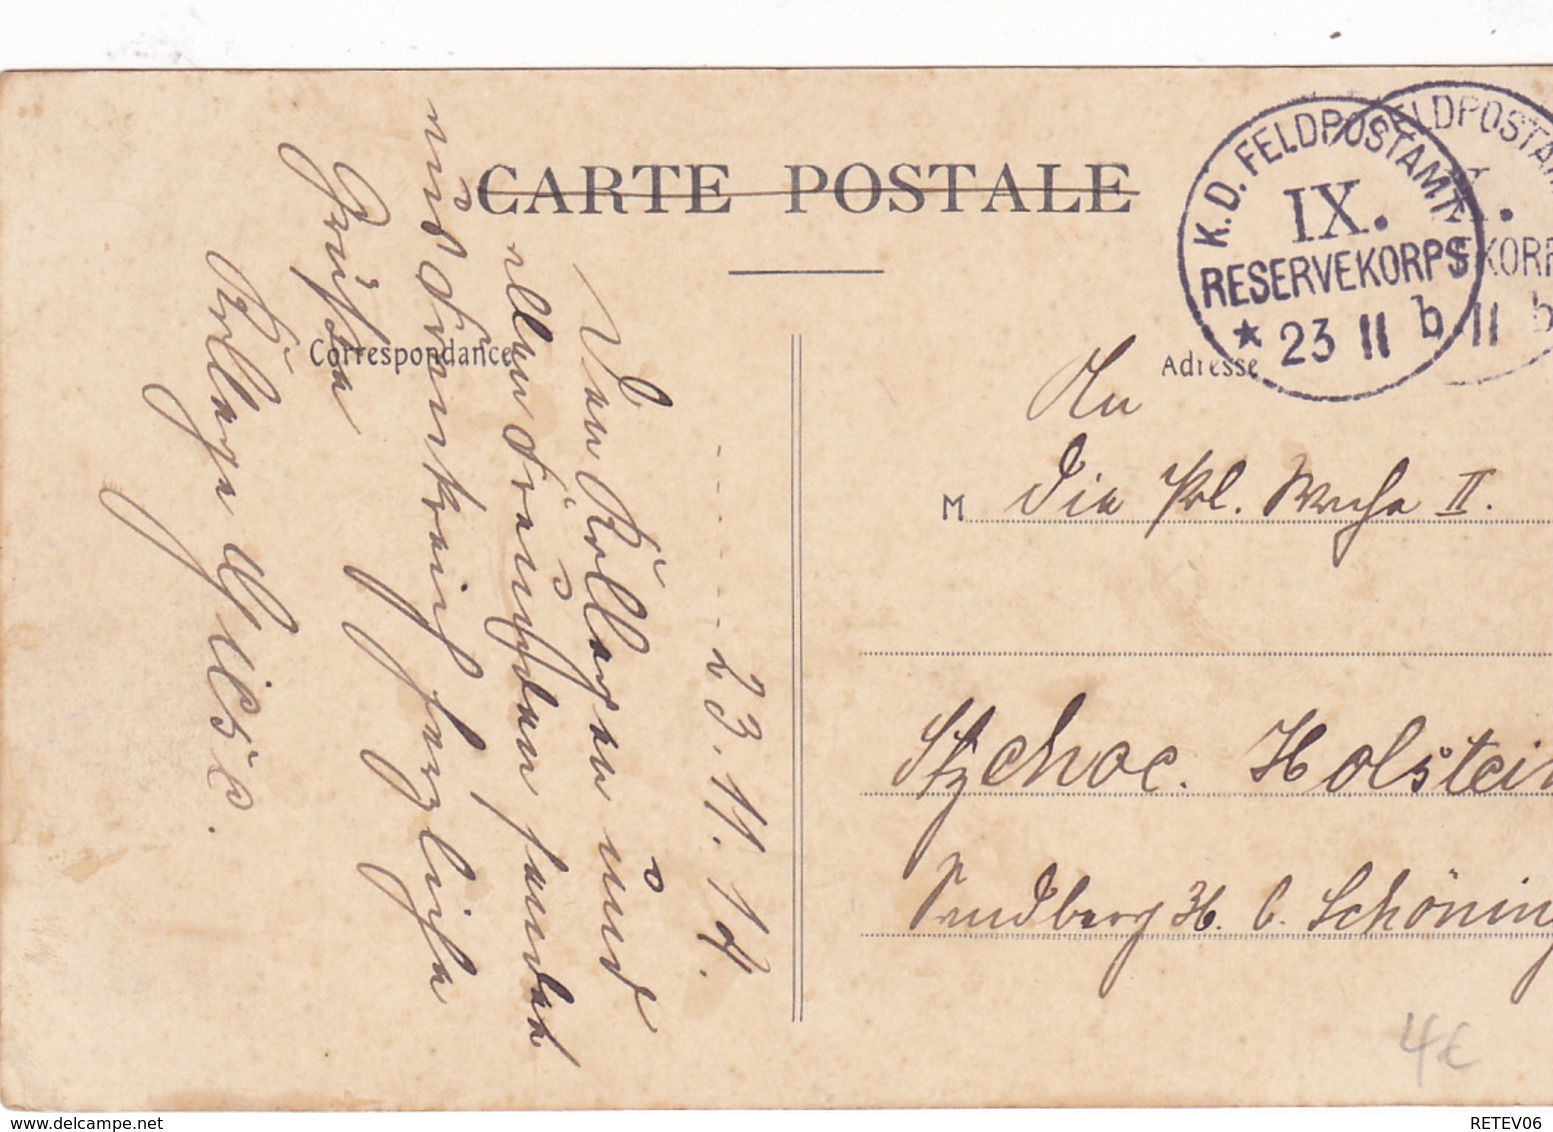 CARTE POSTALE
K.D. FELDPOSTAMT
IX.
RESERVEKORPS
* 23 11 b
ELDPOSTAM
EKORP
11 b
Correspondance
Adresse
23.11.14.
Den Kollegen und
allen Freunden sendet
aus Frankreich herzliche
Grüße
Kollege
An
die Pol. Wache II.
M
Holstein
Sandberg
Schöning
4€
delcampe.net
RETEV06